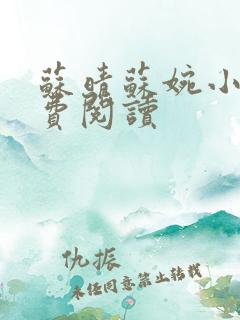 蘇晴蘇婉小
費閱讀
仇振
未經同意禁止轉載